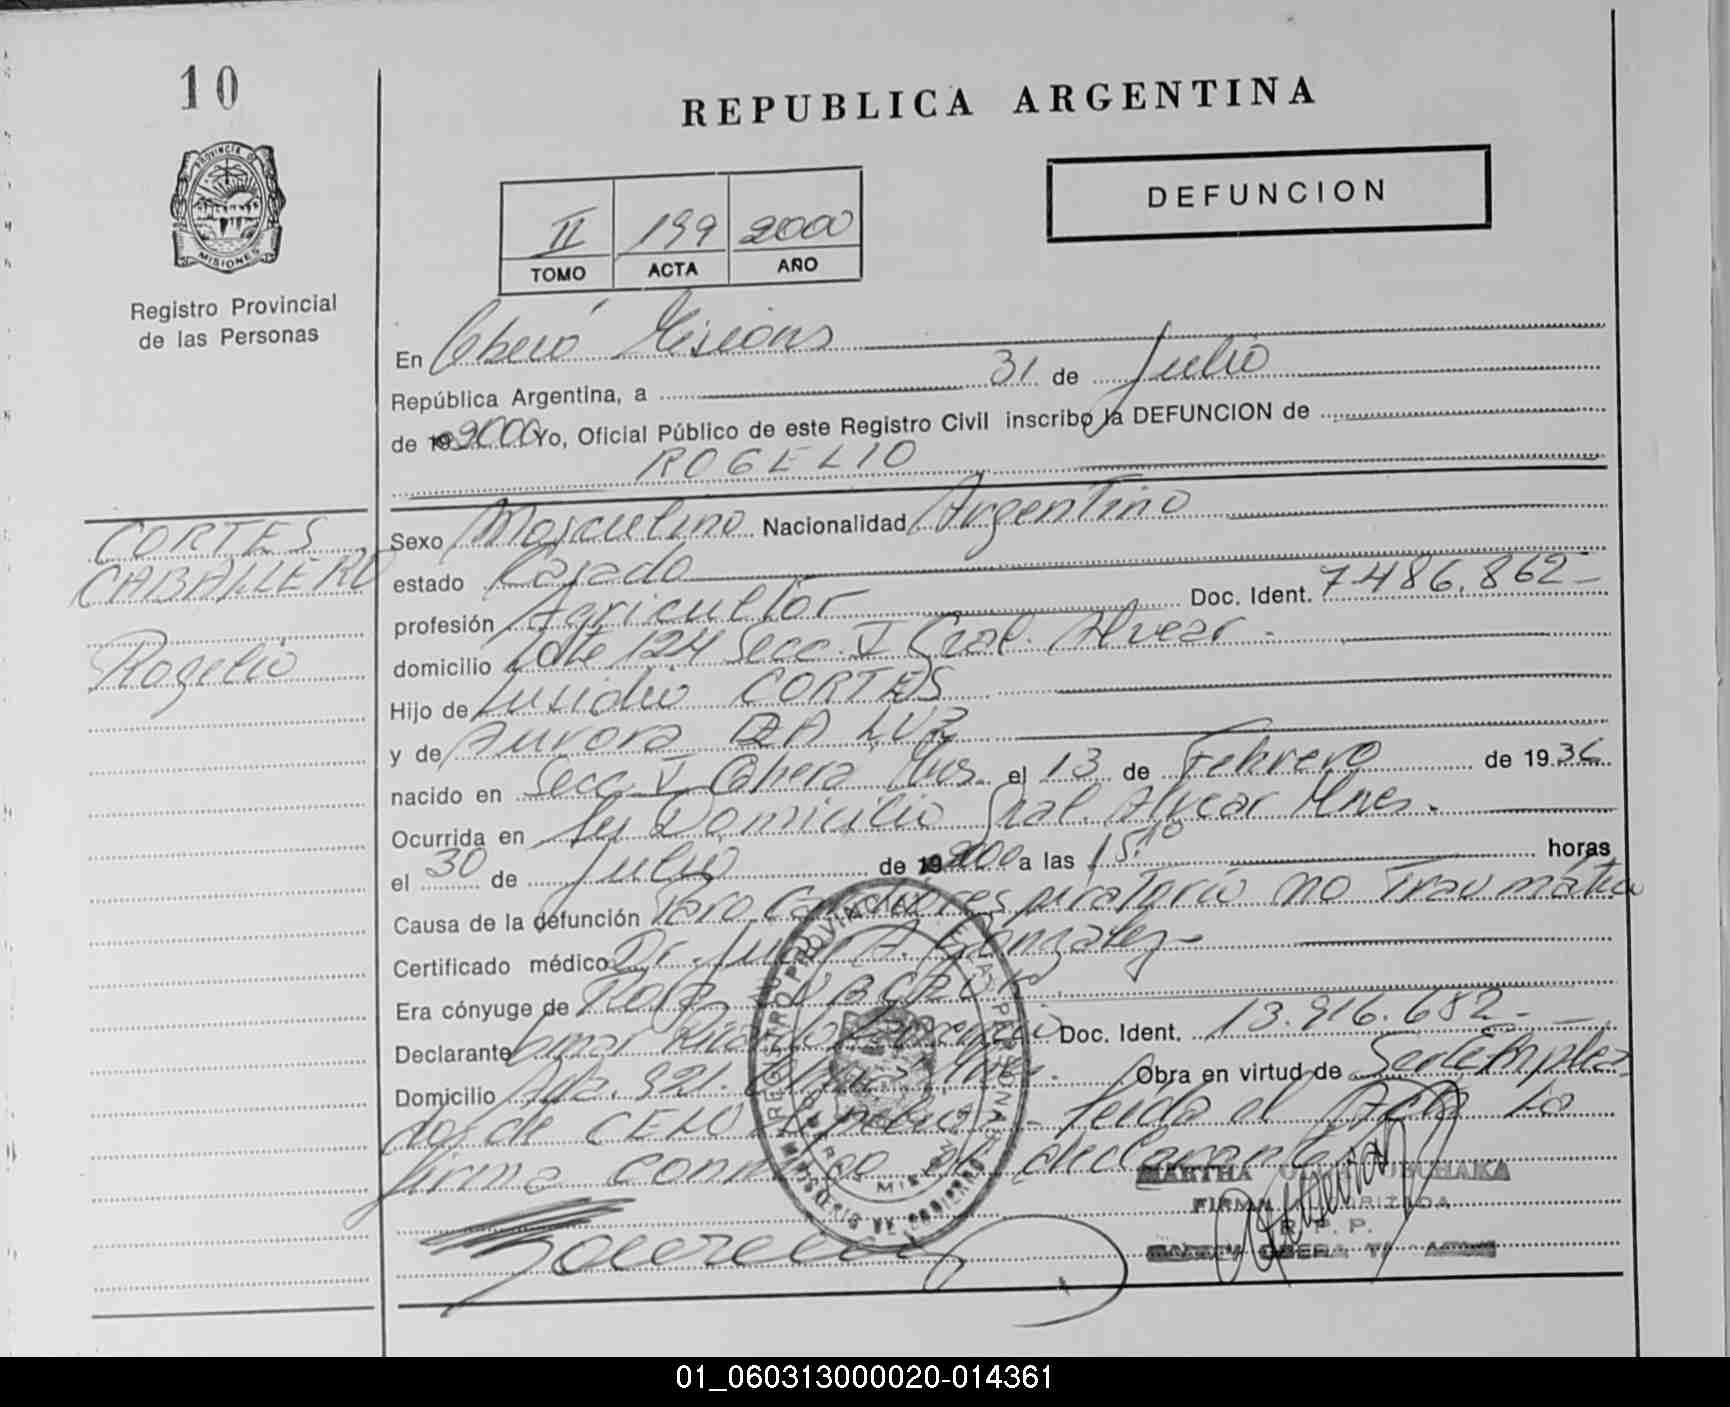 10
REPUBLICA ARGENTINA
DEFUNCION
PROVINCIA DE
MISIONES
II 199 2000
TOMO ACTA AÑO
Registro Provincial
de las Personas
En Oberá Misiones
República Argentina, a 31 de Julio
de 19 2000 Yo, Oficial Público de este Registro Civil inscribo la DEFUNCION de
ROGELIO
CORTES
CABALLERO
Rogelio
Sexo Masculino Nacionalidad Argentino
estado Casado
profesión Agricultor Doc. Ident. 7.486.862-
domicilio Lote 124 Secc. V Gral. Alvear -
Hijo de CORTES
y de Aurora DA LUZ
nacido en Secc. V Oberá Mns. el 13 de Febrero de 1936
Ocurrida en Su Domicilio Gral. Alvear Mnes.
el 30 de Julio de 19 2000 a las 15:10 horas
Causa de la defunción Paro Cardiorespiratorio no Traumático
Certificado médico Dr. A. Gonzalez-
Era cónyuge de Rosa
Declarante Omar Ricardo Doc. Ident. 13.916.682.-
Domicilio 921. Obra en virtud de Ser Emplea
do de CELO Leída el Acta La
firma conmigo el declarante
REGISTRO PROVINCIAL DE LAS PERSONAS
MINISTERIO DE GOBIERNO
MARTHA
FIRMA AUTORIZADA
R. P. P.
OBERA
01_060313000020-014361